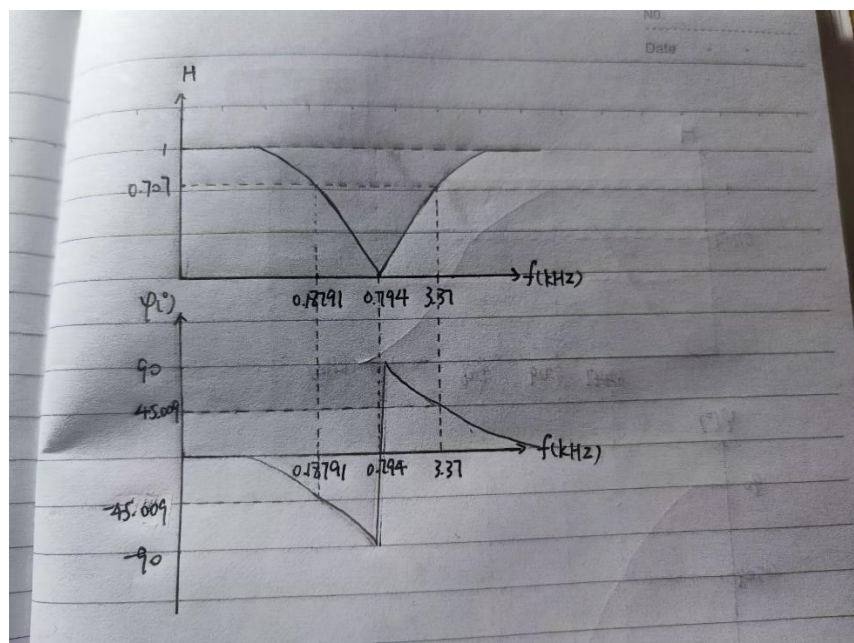 No.
Date
H
1
0.707
0.18791 0.794 3.37 f(kHz)
φ(°)
90
45.009
0.18791 0.794 3.37 f(kHz)
-45.009
-90